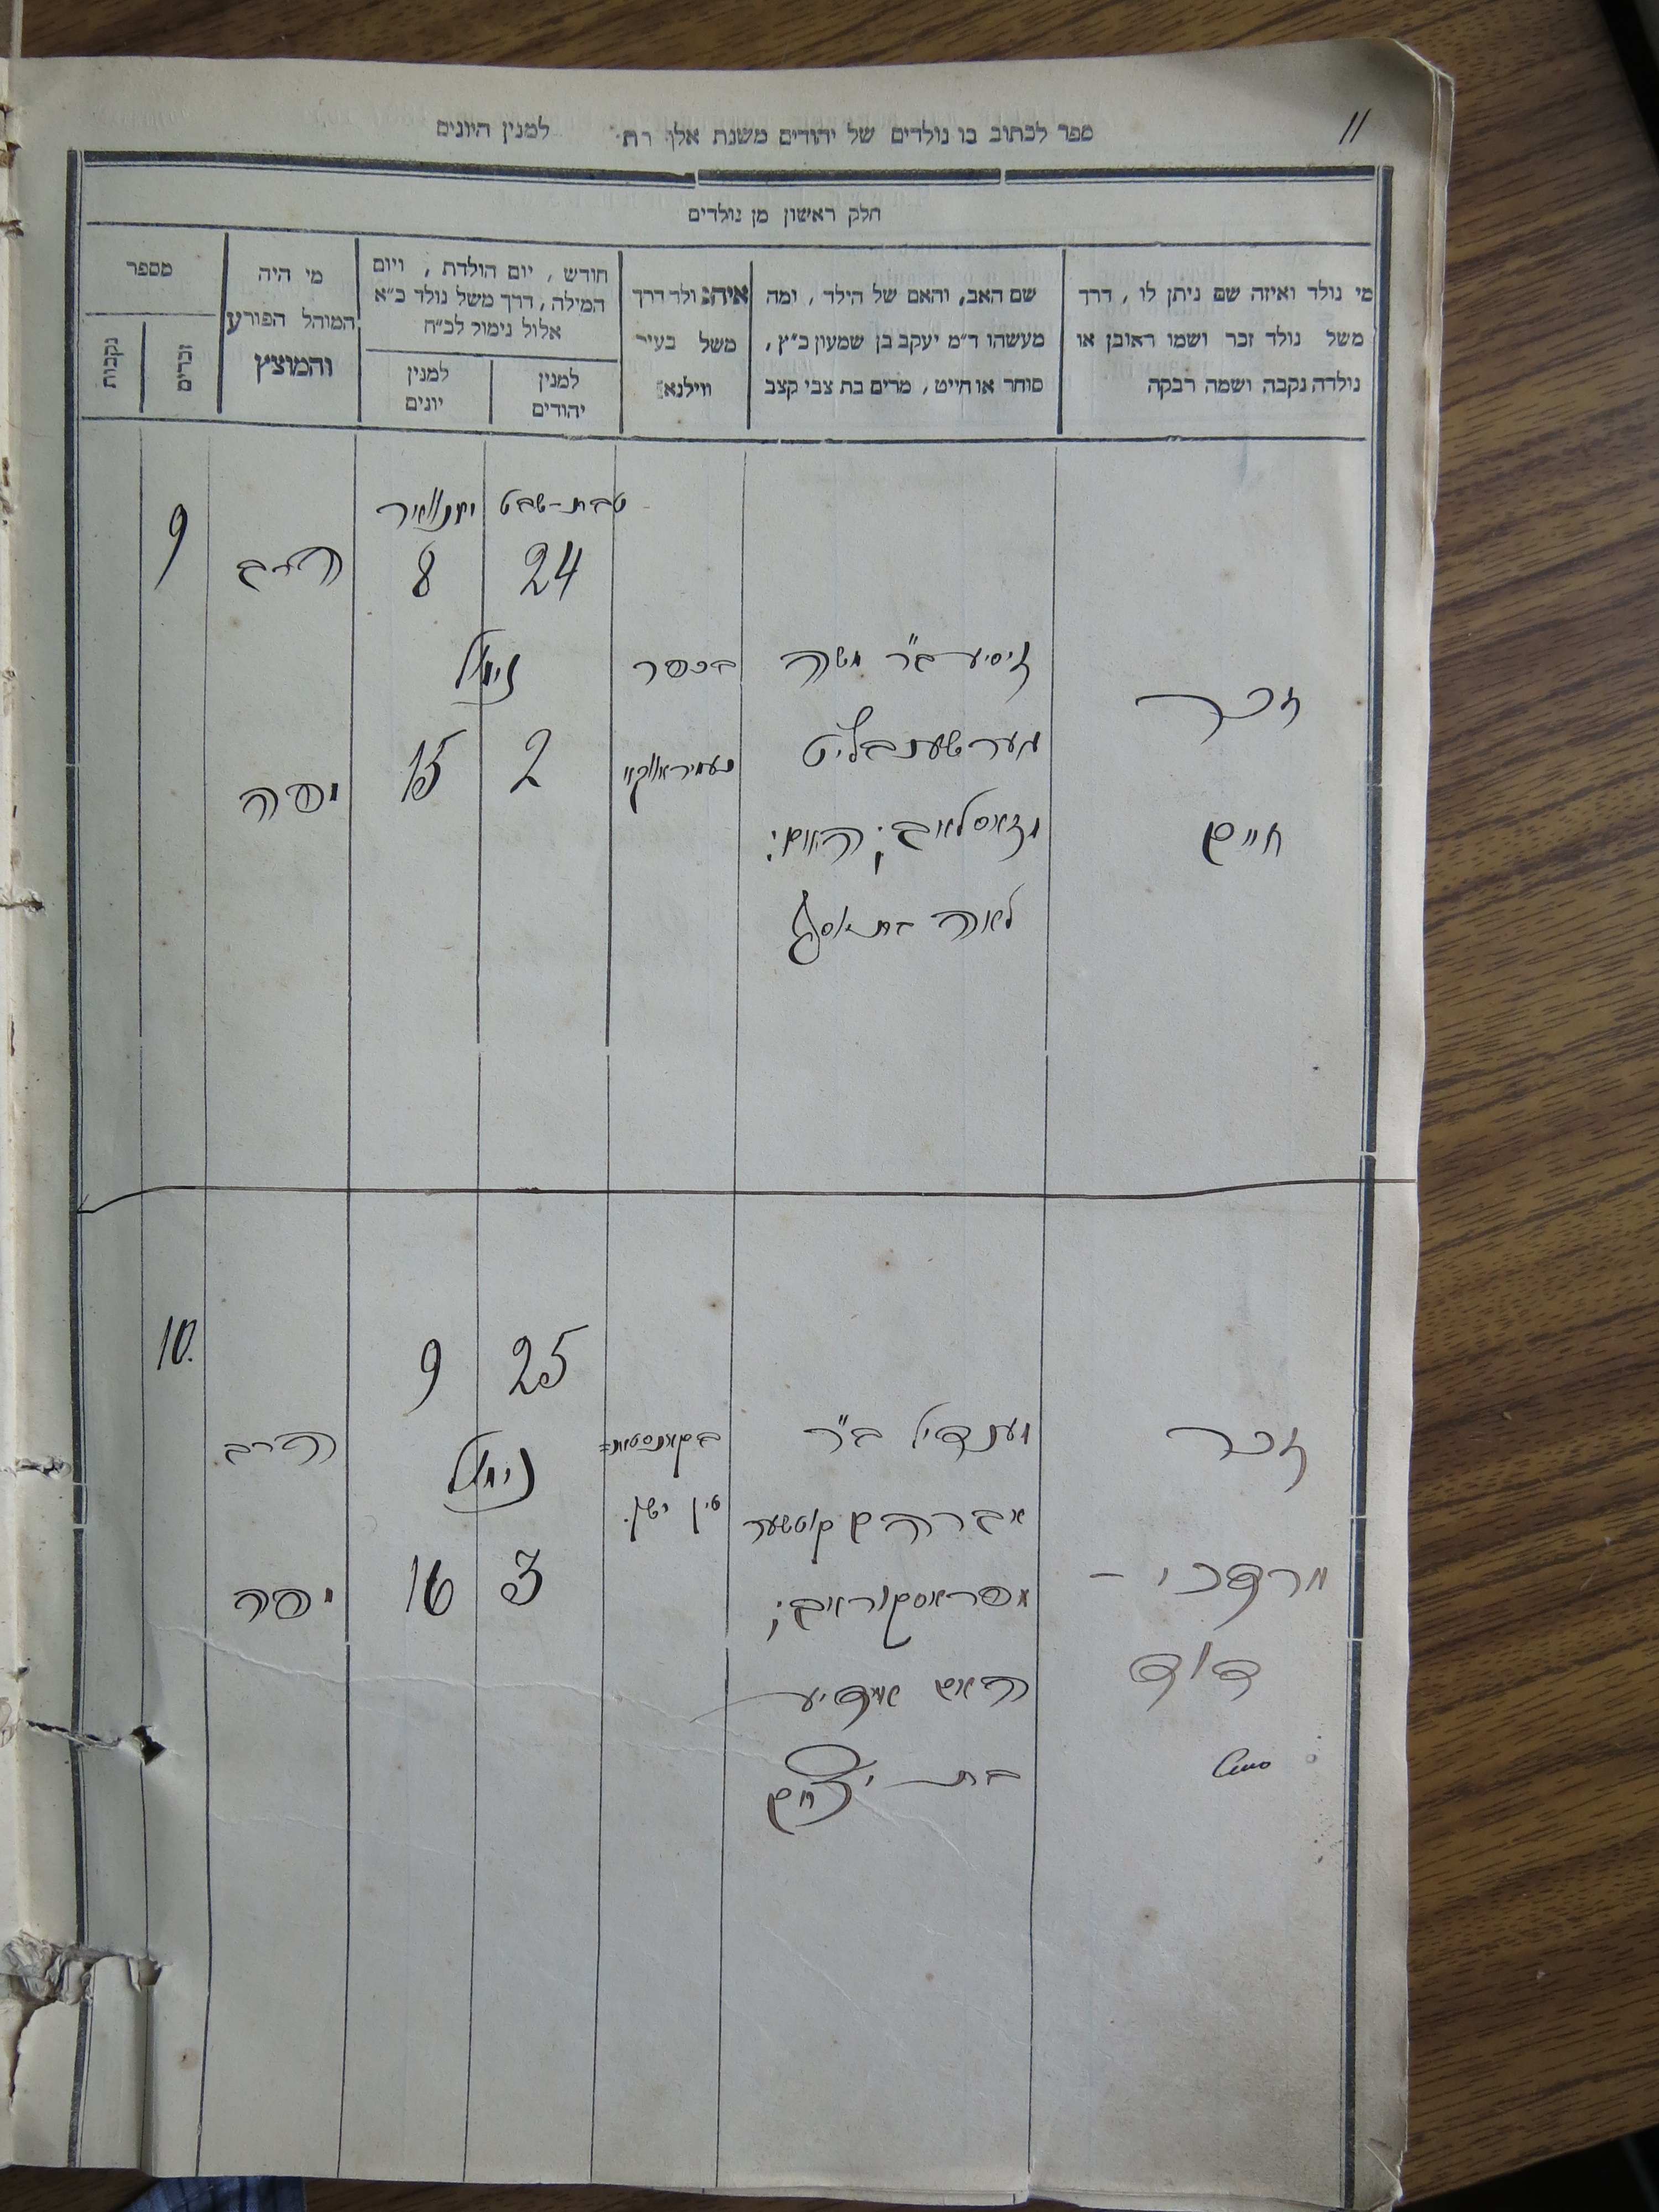 11
ספר לכתוב בו נולדים של יהודים משנת אלף רת למנין היונים
חלק ראשון מן נולדים
מי נולד ואיזה שם ניתן לו, דרך
משל נולד זכר ושמו ראובן או
נולדה נקבה ושמה רבקה
שם האב, והאם של הילד, ומה
מעשהו ד״מ יעקב בן שמעון כ״ץ,
סוחר או חייט, מרים בת צבי קצב
איה נולד דרך
משל בעיר
ווילנא
חודש, יום הולדת, ויום
המילה, דרך משל נולד כ״א
אלול נימול לכ״ח
למנין
יהודים
למנין
יונים
מי היה
המוהל הפורע
והמוצץ
מספר
זכרים
נקבות
טבת-שבט
יאנוואיר
9
24
8
הרב
נימול
2
15
יפה
זכר
חיים
זיסיע ב״ר משה
מזאסלאב; האם:
לאה בת
בכפר
10.
25
9
הרב
נימול
3
16
יפה
זכר
מרדכי -
דוד
מענדיל ב״ר
אברהם קוטשער
האם אידיע
בת
בקאנסטאנ=
טין ישן.